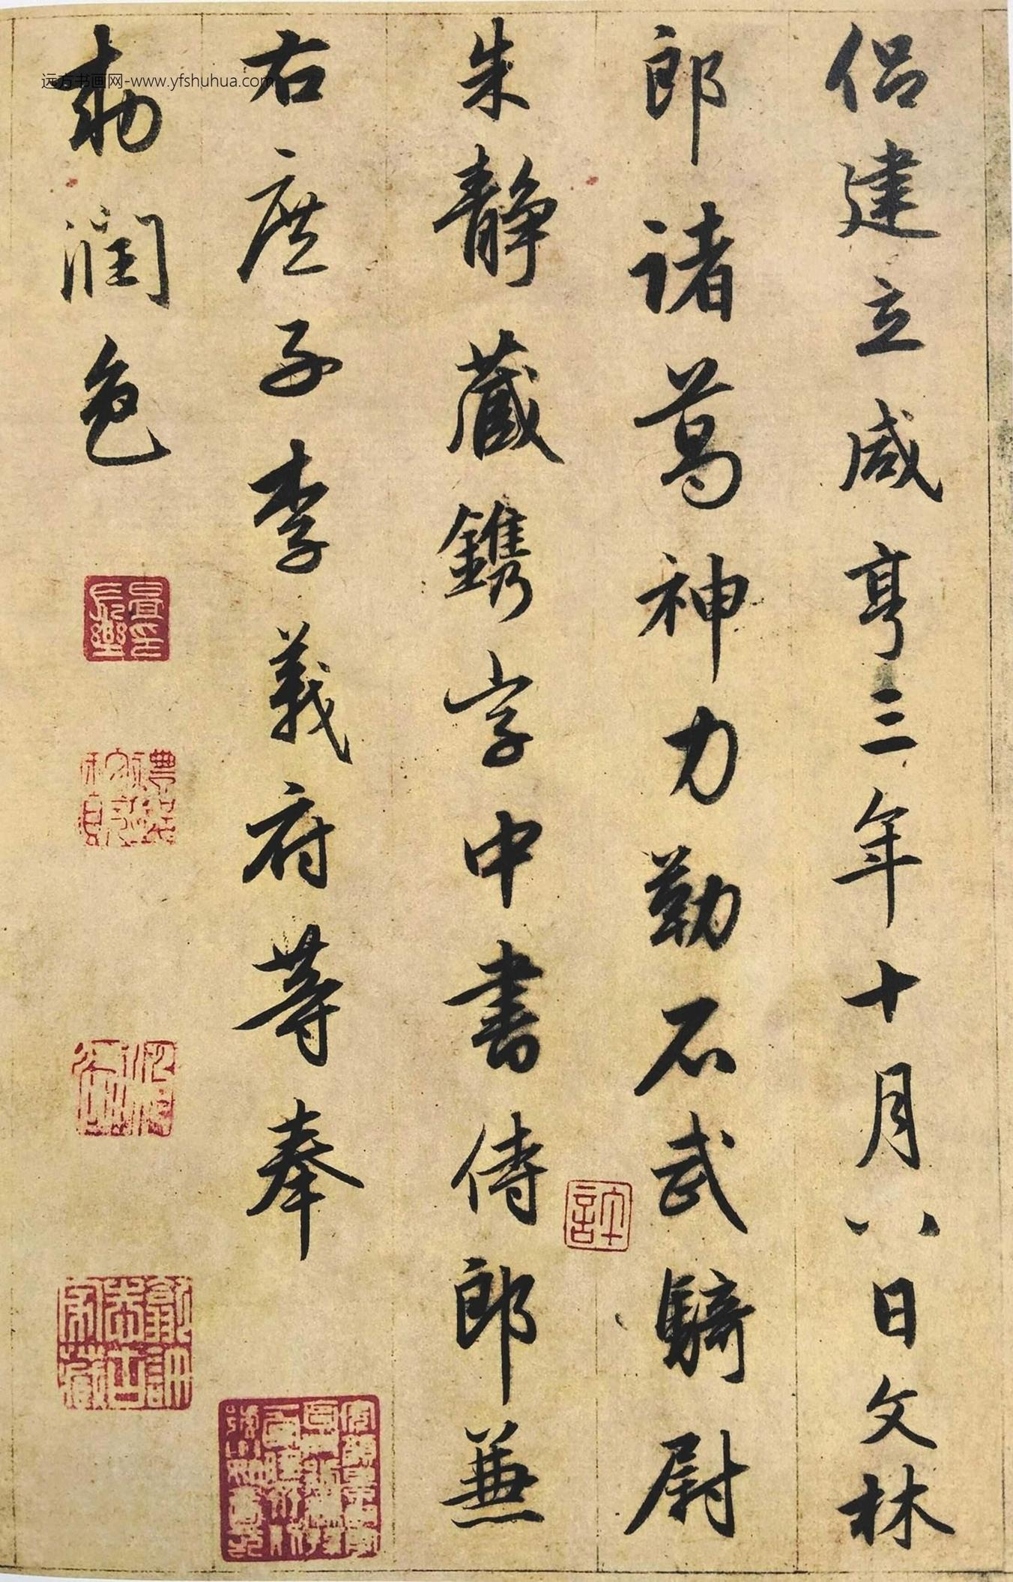 侣建立咸亨三年十月八日文林
郎诸葛神力勒石武騎尉
朱静藏鐫字中書侍郎兼
右庶子李義府等奉
勅潤色
远方书画网-www.yfshuhua.com